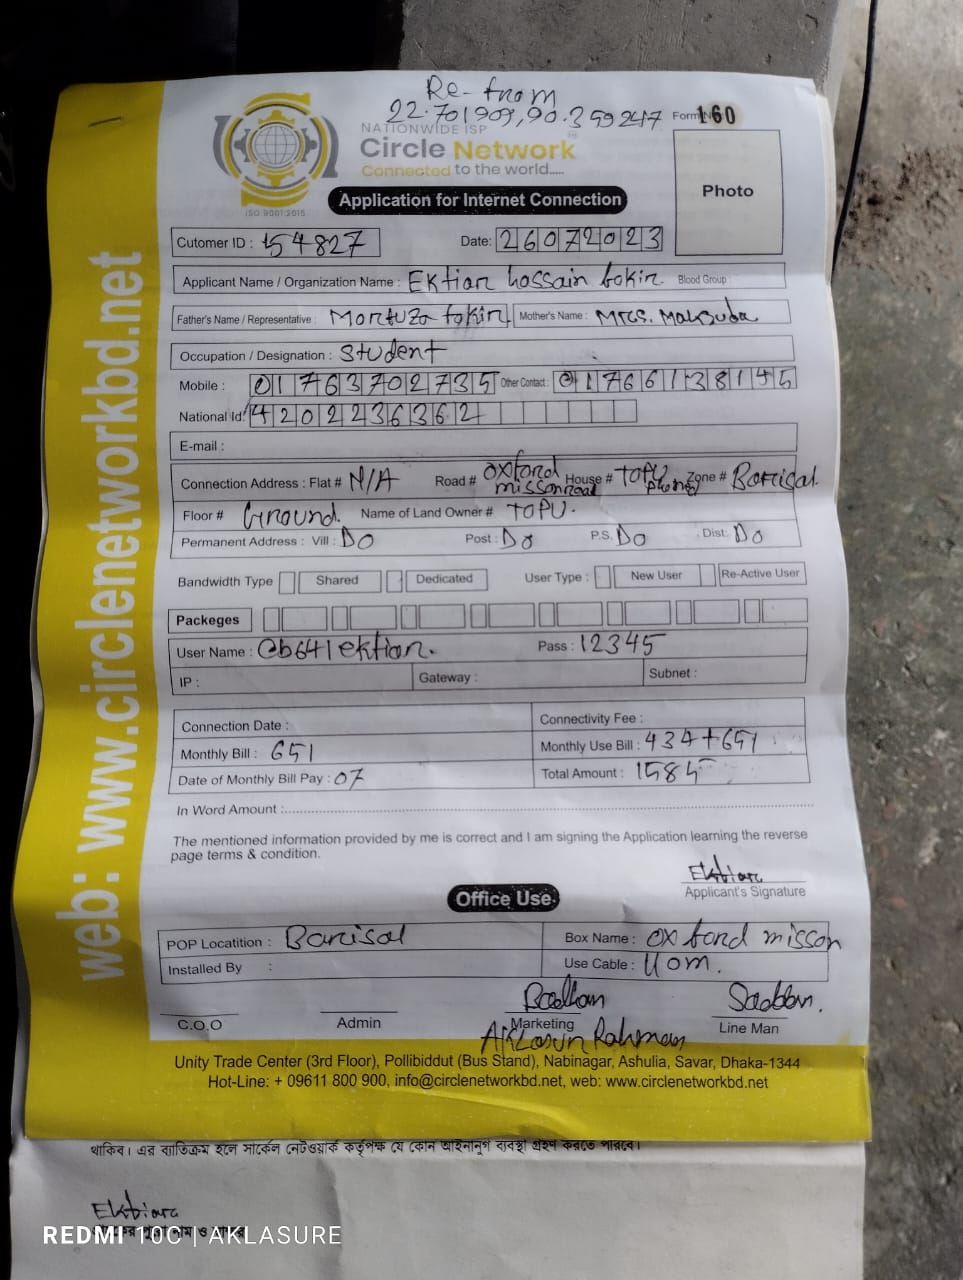 Re-from
22.701909,90.359247
Form No 160
NATIONWIDE ISP
Circle Network
Connected to the world.....
ISO 9001:2015
Application for Internet Connection
Photo
Cutomer ID : 54827 Date: 26072023
Applicant Name / Organization Name : Ektiar hossain fokir Blood Group :
Father's Name / Representative : Mortuza fokir Mother's Name : Mrs. Maksuda
Occupation / Designation : Student
Mobile : 01763702735 Other Contact : 01766138145
National Id: 4202236362
E-mail :
Connection Address : Flat # N/A Road # oxford misson road House # TOPU Zone # Barisal.
Floor # Ground. Name of Land Owner # TOPU.
Permanent Address : Vill : Do Post : Do P.S. Do Dist: Do
Bandwidth Type Shared Dedicated User Type : New User Re-Active User
Packeges
User Name : Pass : 12345
IP : Gateway : Subnet :
Connection Date : Connectivity Fee :
Monthly Bill : 651 Monthly Use Bill : 434+651
Date of Monthly Bill Pay : 07 Total Amount : 1585
In Word Amount :
The mentioned information provided by me is correct and I am signing the Application learning the reverse
page terms & condition.
Ektiar
Applicant's Signature
Office Use
POP Locatition : Barisal Box Name : oxford misson
Installed By : Use Cable : 110m.
C.O.O Admin Marketing Line Man
Rahman
Unity Trade Center (3rd Floor), Pollibiddut (Bus Stand), Nabinagar, Ashulia, Savar, Dhaka-1344
Hot-Line: + 09611 800 900, info@circlenetworkbd.net, web: www.circlenetworkbd.net
web: www.circlenetworkbd.net
থাকিব। এর ব্যতিক্রম হলে সার্কেল নেটওয়ার্ক কর্তৃপক্ষ যে কোন আইনানুগ ব্যবস্থা গ্রহণ করতে পারবে।
Ektiar
REDMI 10C | AKLASURE